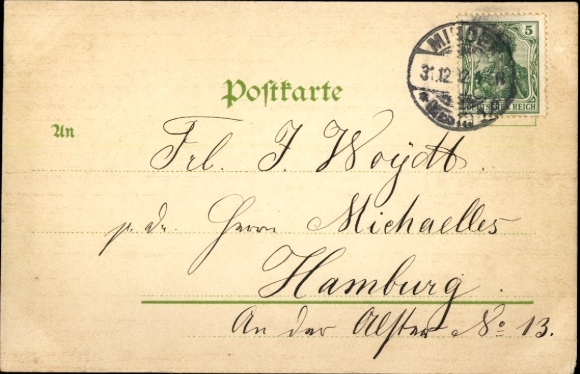 5
MINDEN
31.12.02
(WESTF.)
DEUTSCHES REICH
Postkarte
An
Frl. J. Woydt.
p. adr. Herrn Michaelles
Hamburg.
An der Alster No 13.